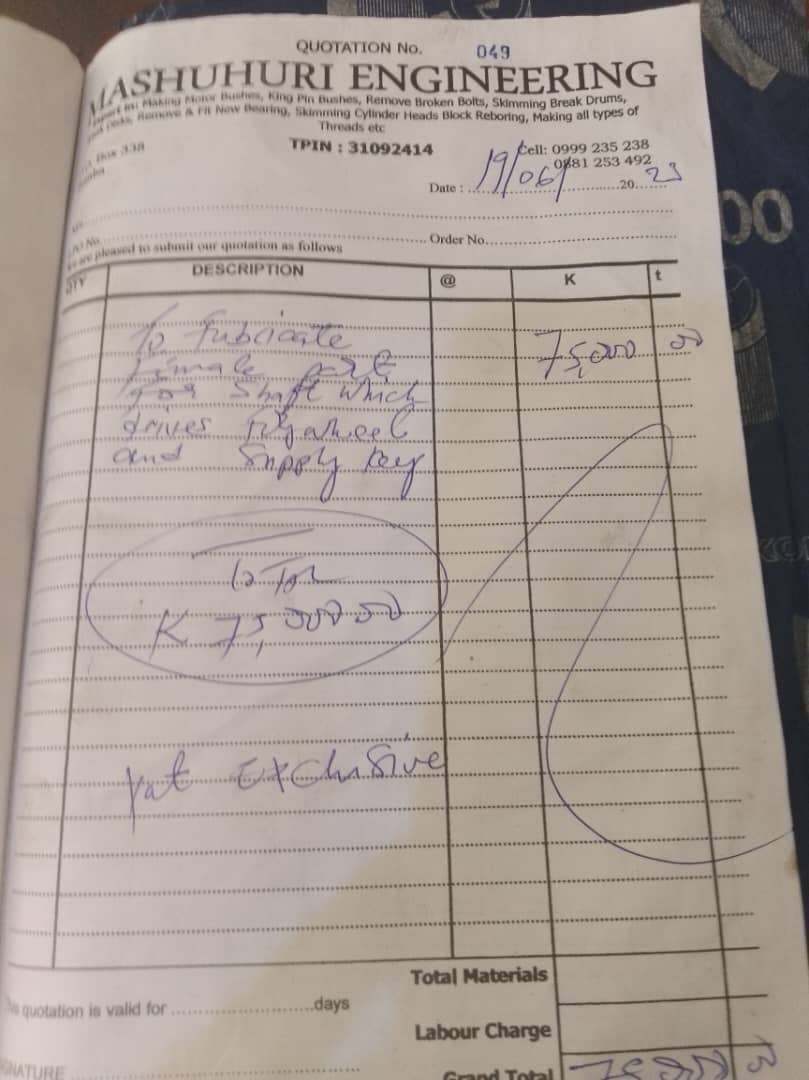 QUOTATION No. 049
MASHUHURI ENGINEERING
Making Motor Bushes, King Pin Bushes, Remove Broken Bolts, Skimming Break Drums,
Remove & Fit New Bearing, Skimming Cylinder Heads Block Reboring, Making all types of
Threads etc
Box 338
TPIN : 31092414
Cell: 0999 235 238
0881 253 492
Date : 19/06/ 20 23
Order No.
are pleased to submit our quotation as follows
QTY DESCRIPTION @ K t
To Fubricate 75,000 00
Fimale part
for Shaft which
drives flywheel
and Supply key
K 75,000 00
Vat Exclusive
Total Materials
quotation is valid for days
Labour Charge
SIGNATURE
Grand Total